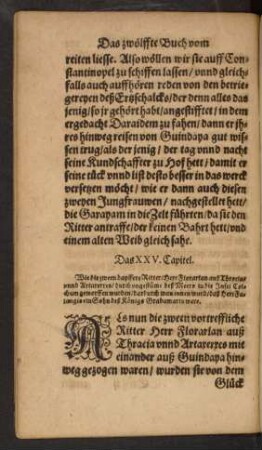 Das zwölffte Buch vom
reiten liesse. Also wöllen wir sie auff Con-
stantinopel zu schiffen lassen / vnnd gleich-
falls auch auffhören reden von den betrie-
getreyen deß Ertzschalcks / der denn alles das
jenig / so jr gehört habt / angestifftet / in dem
ergedacht Daraidem zu fahen / dann er jh-
res hinweg reisen von Guindapa gut wis-
sen trug / als der jenig / der tag vnnd nacht
seine Kundschaffter zu Hof hett / damit er
seine tück vnnd list desto besser in das werck
versetzen möcht / wie er dann auch diesen
zweyen Jungfrauwen / nachgestellet hett /
die Garayam in die Zelt führten / da sie den
Ritter antraffe / der keinen Bahrt hett / vnd
einem alten Weib gleich sahe.
Das XXV. Capitel.
Wie die zween dapffere Ritter Herr Florarlan auß Thracia
vnnd Artaxerxes / durch vngestüm deß Meers in die Insel
geworffen wurden / dardurch man innen ward / daß Herr
ein Sohn deß Königs
ALs nun die zween vortreffliche
Ritter Herr Florarlan auß
Thracia vnnd Artaxerxes mit
einander auß Guindapa hin-
weg gezogen waren / wurden sie von dem
Glück